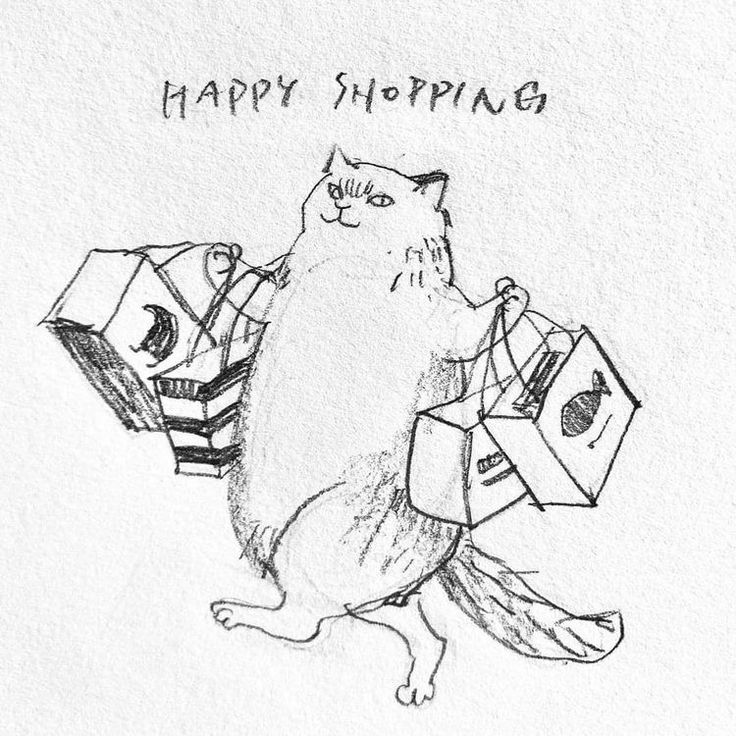 HAPPY SHOPPING